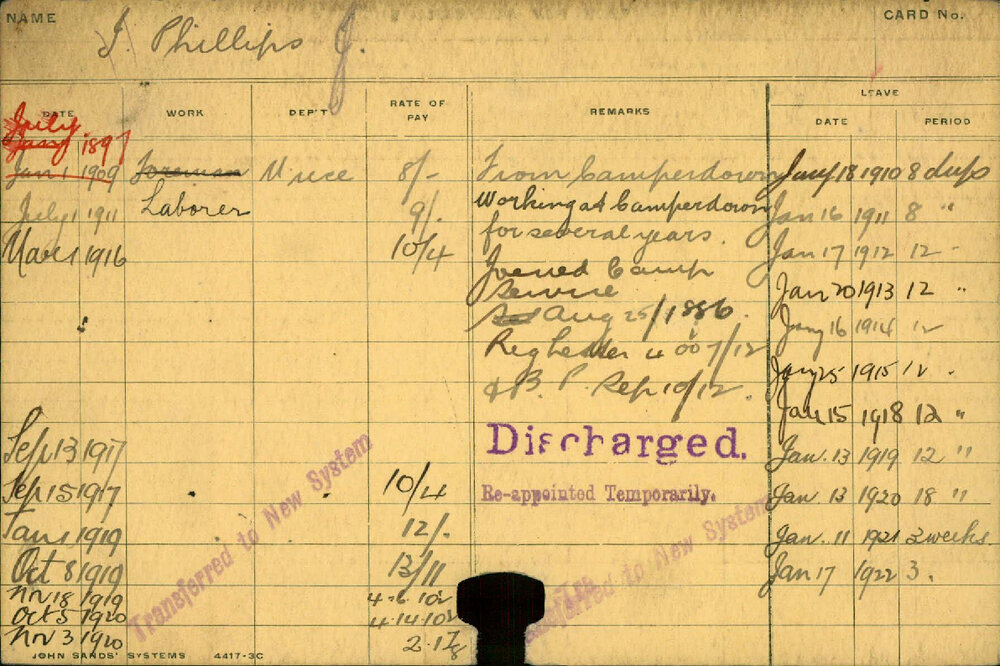 NAME
CARD No.
J. Phillips J.
LEAVE
DATE WORK DEP'T RATE OF PAY REMARKS DATE PERIOD
July
Jany 1897
Jan 1 1909 Foreman 8/- From Camperdown Jany 18 1910 8 days
July 1 1911 Laborer 9/. Working at Camperdown Jan 16 1911 8 "
Mar 1 1916 10/4 for several years. Jan 17 1912 12 "
Joined Camp Jan 20 1913 12 "
Service
Aug 25/1886. Jany 16 1914 12
Reg Letter 4007/12 Jany 25 1915 12 "
& B. P. Rep 10/12. Jan 15 1918 12 "
Sep 13 1917 Discharged. Jan. 13 1919 12 "
Sep 15 1917 10/4 Re-appointed Temporarily. Jan. 13 1920 18 "
Jan 1 1919 12/. Jan. 11 1921 3 weeks.
Oct 8 1919 13/11 Jan 17 1922 3.
Nov 18 1919 4-6-10 1/2
Oct 5 1920 4-14-10 1/2
Nov 3 1920
Transferred to New System
Transferred to New System
JOHN SANDS' SYSTEMS 4417-3C